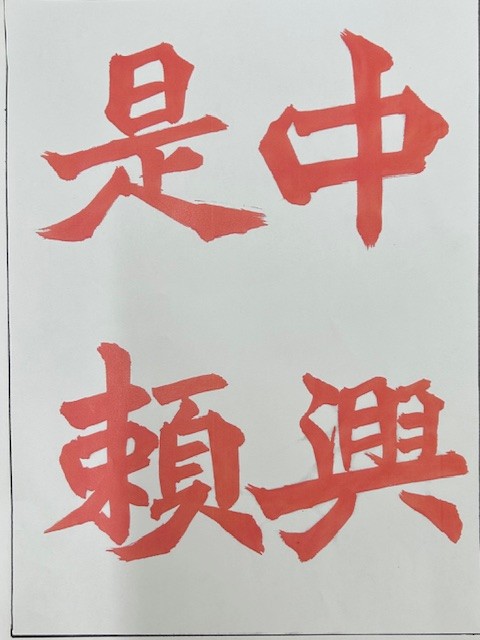 中興
是頼